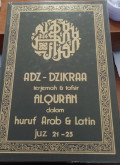 ADZ-DZIKRAA
terjemah & tafsir
ALQUR'AN
dalam
huruf Arab & Latin
juz 21-25